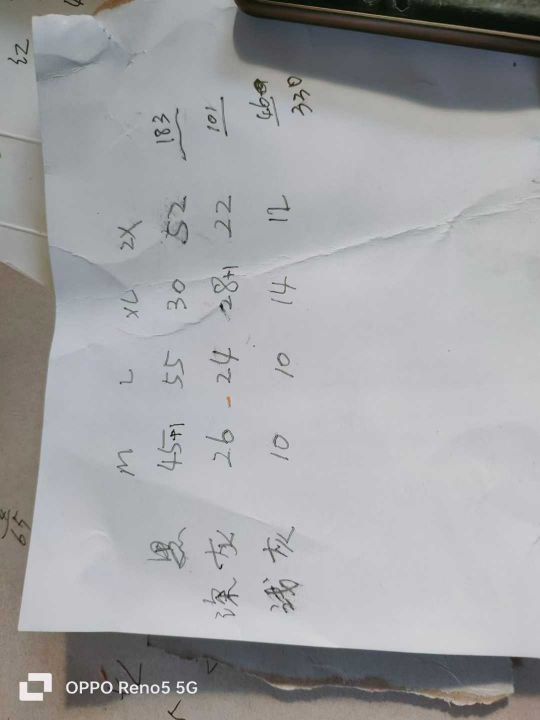 M L XL 2X
黑 45+1 55 30 52 183
深灰 26 - 24 28+1 22 101
浅灰 10 10 14 12 46
330
OPPO Reno5 5G